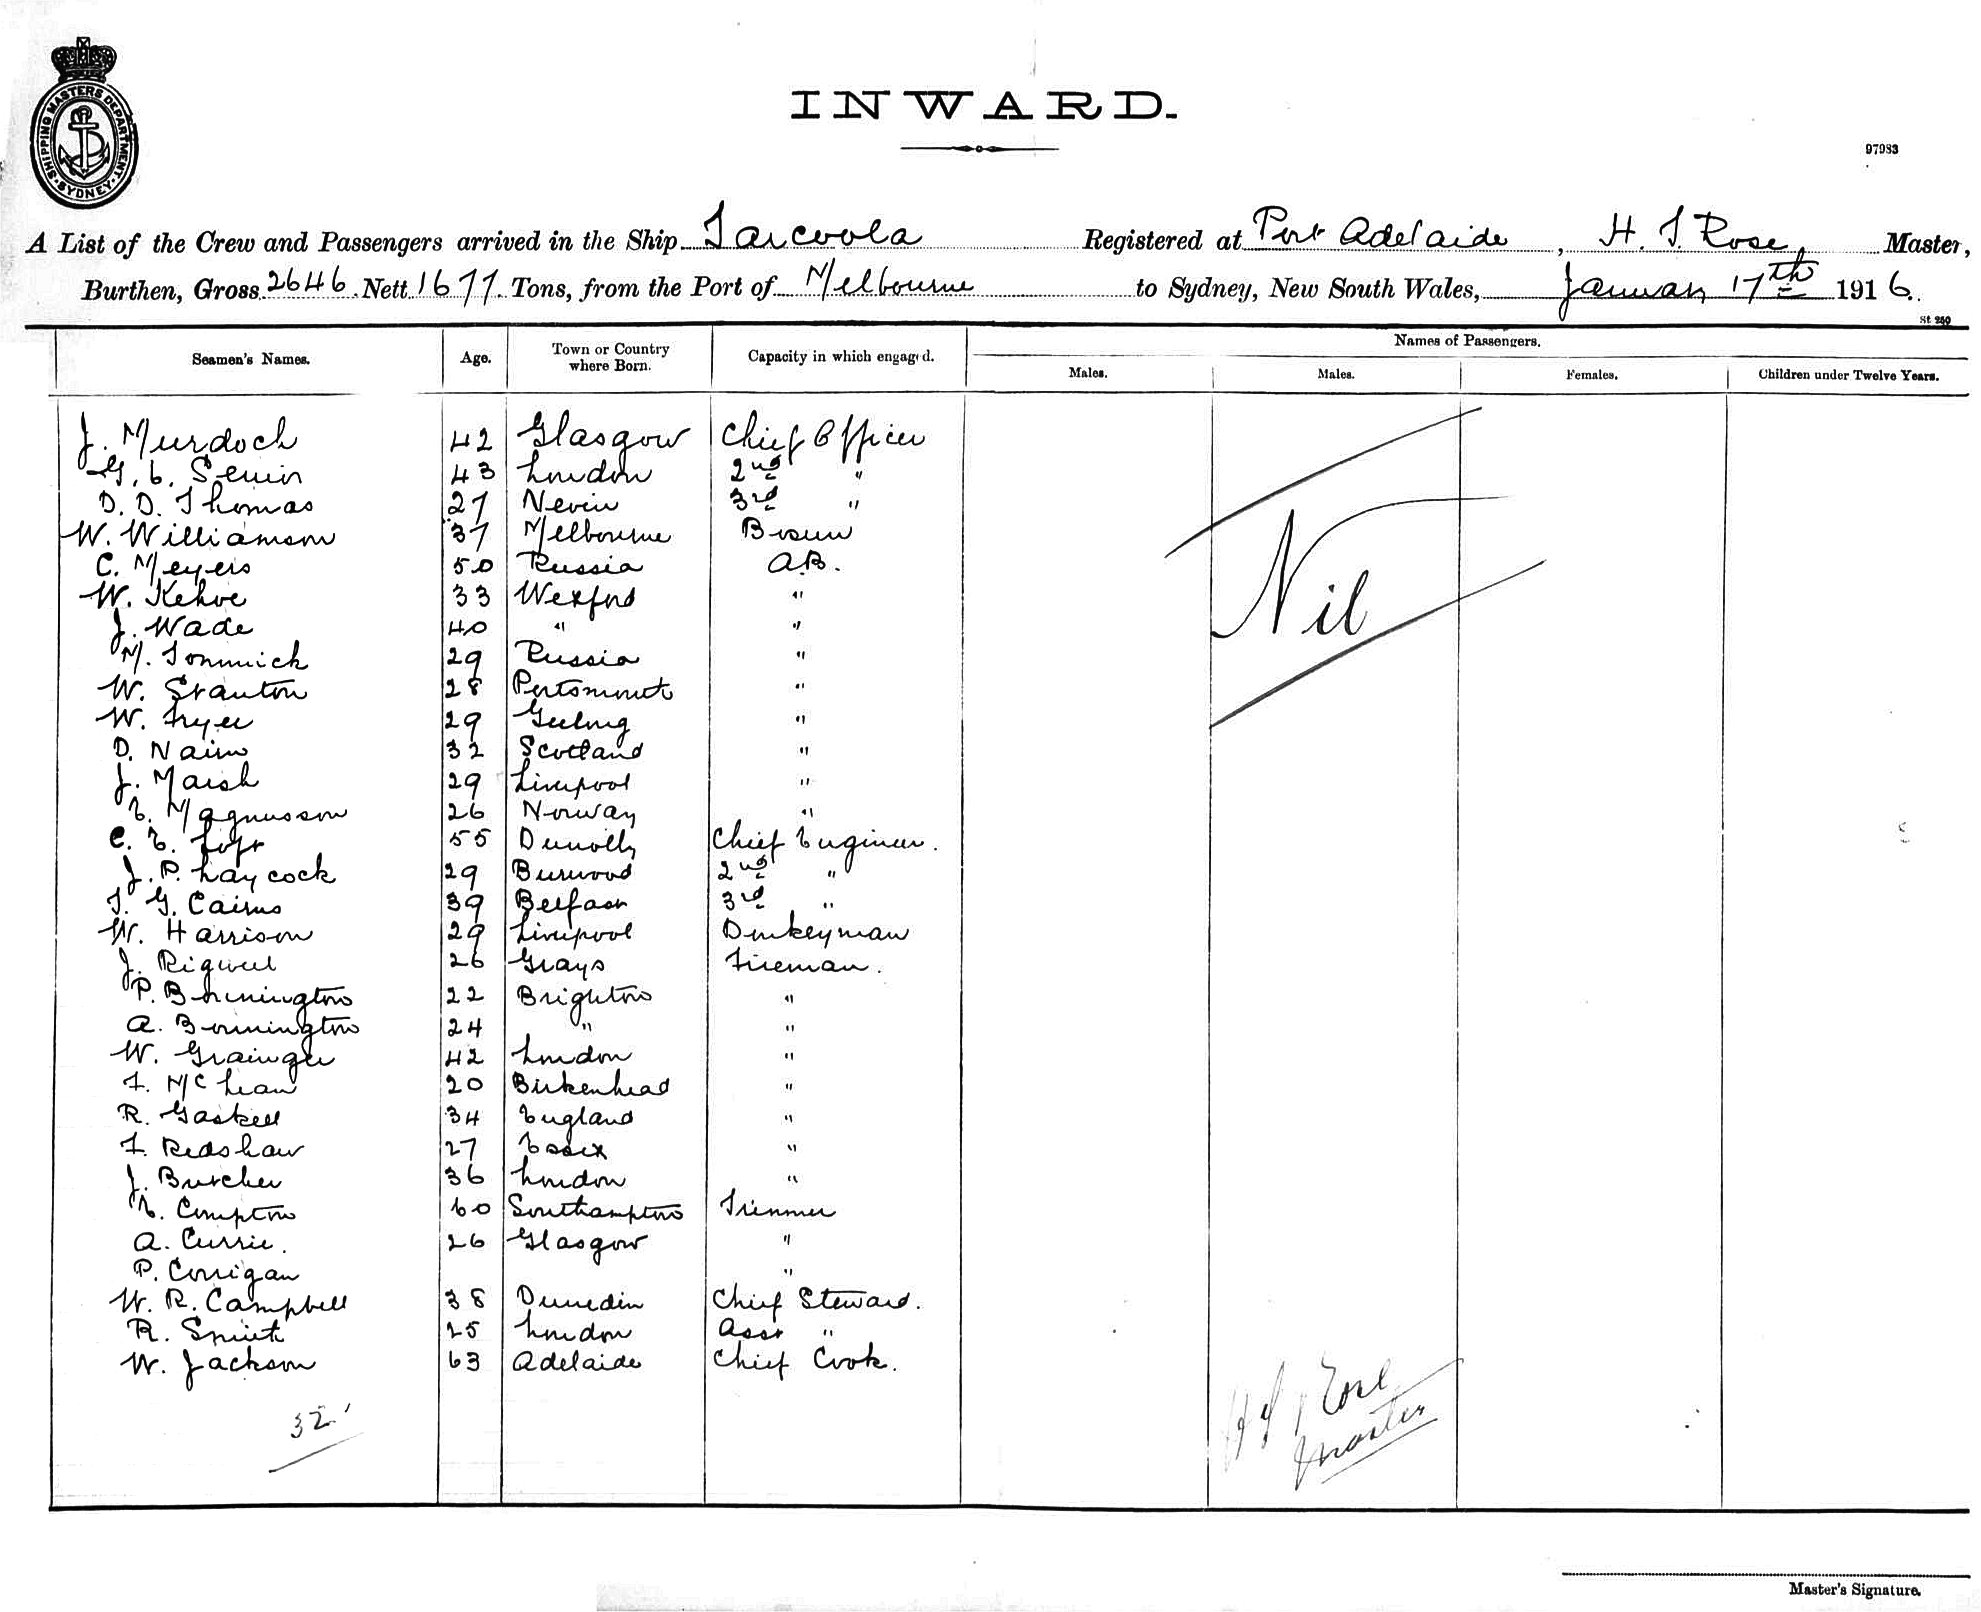 SHIPPING MASTERS DEPARTMENT, SYDNEY
INWARD.
97983
A List of the Crew and Passengers arrived in the Ship Tarcoola Registered at Port Adelaide, H. J. Rose, Master,
Burthen, Gross 2646 Nett 1677 Tons, from the Port of Melbourne to Sydney, New South Wales, January 17th 1916.
St 250
Seamen's Names. Age. Town or Country where Born. Capacity in which engaged. Names of Passengers.
Males. Males. Females. Children under Twelve Years.
J. Murdoch 42 Glasgow Chief Officer
G. C. Senior 43 London 2nd "
D. D. Thomas 27 Nevin 3rd "
W. Williamson 37 Melbourne Bosun
C. Meyers 50 Russia A.B.
W. Kehoe 33 Wexford "
J. Wade 40 " "
Nil
M. 29 Russia "
W. Stanton 28 Portsmouth "
W. Fryer 29 Geelong "
D. Nairn 32 Scotland "
J. Marsh 29 Liverpool "
E. Magnusson 26 Norway "
C. E. Loft 55 Dunolly Chief Engineer.
J. P. Laycock 29 Burwood 2nd "
J. G. Cairns 39 Belfast 3rd "
W. Harrison 29 Liverpool Donkeyman
J. Rigwell 26 Grays Fireman.
P. Bonnington 22 Brighton "
A. Bonnington 24 " "
W. Grainger 42 London "
F. McLean 20 Birkenhead "
R. Gaskell 34 England "
F. Redshaw 27 Essex "
J. Butcher 36 London "
E. Compton 60 Southampton Trimmer
A. Currie. 26 Glasgow "
P. Corrigan "
W. R. Campbell 38 Dunedin Chief Steward.
R. 25 London Asst "
W. Jackson 63 Adelaide Chief Cook.
32
H J Rose
Master
Master's Signature.